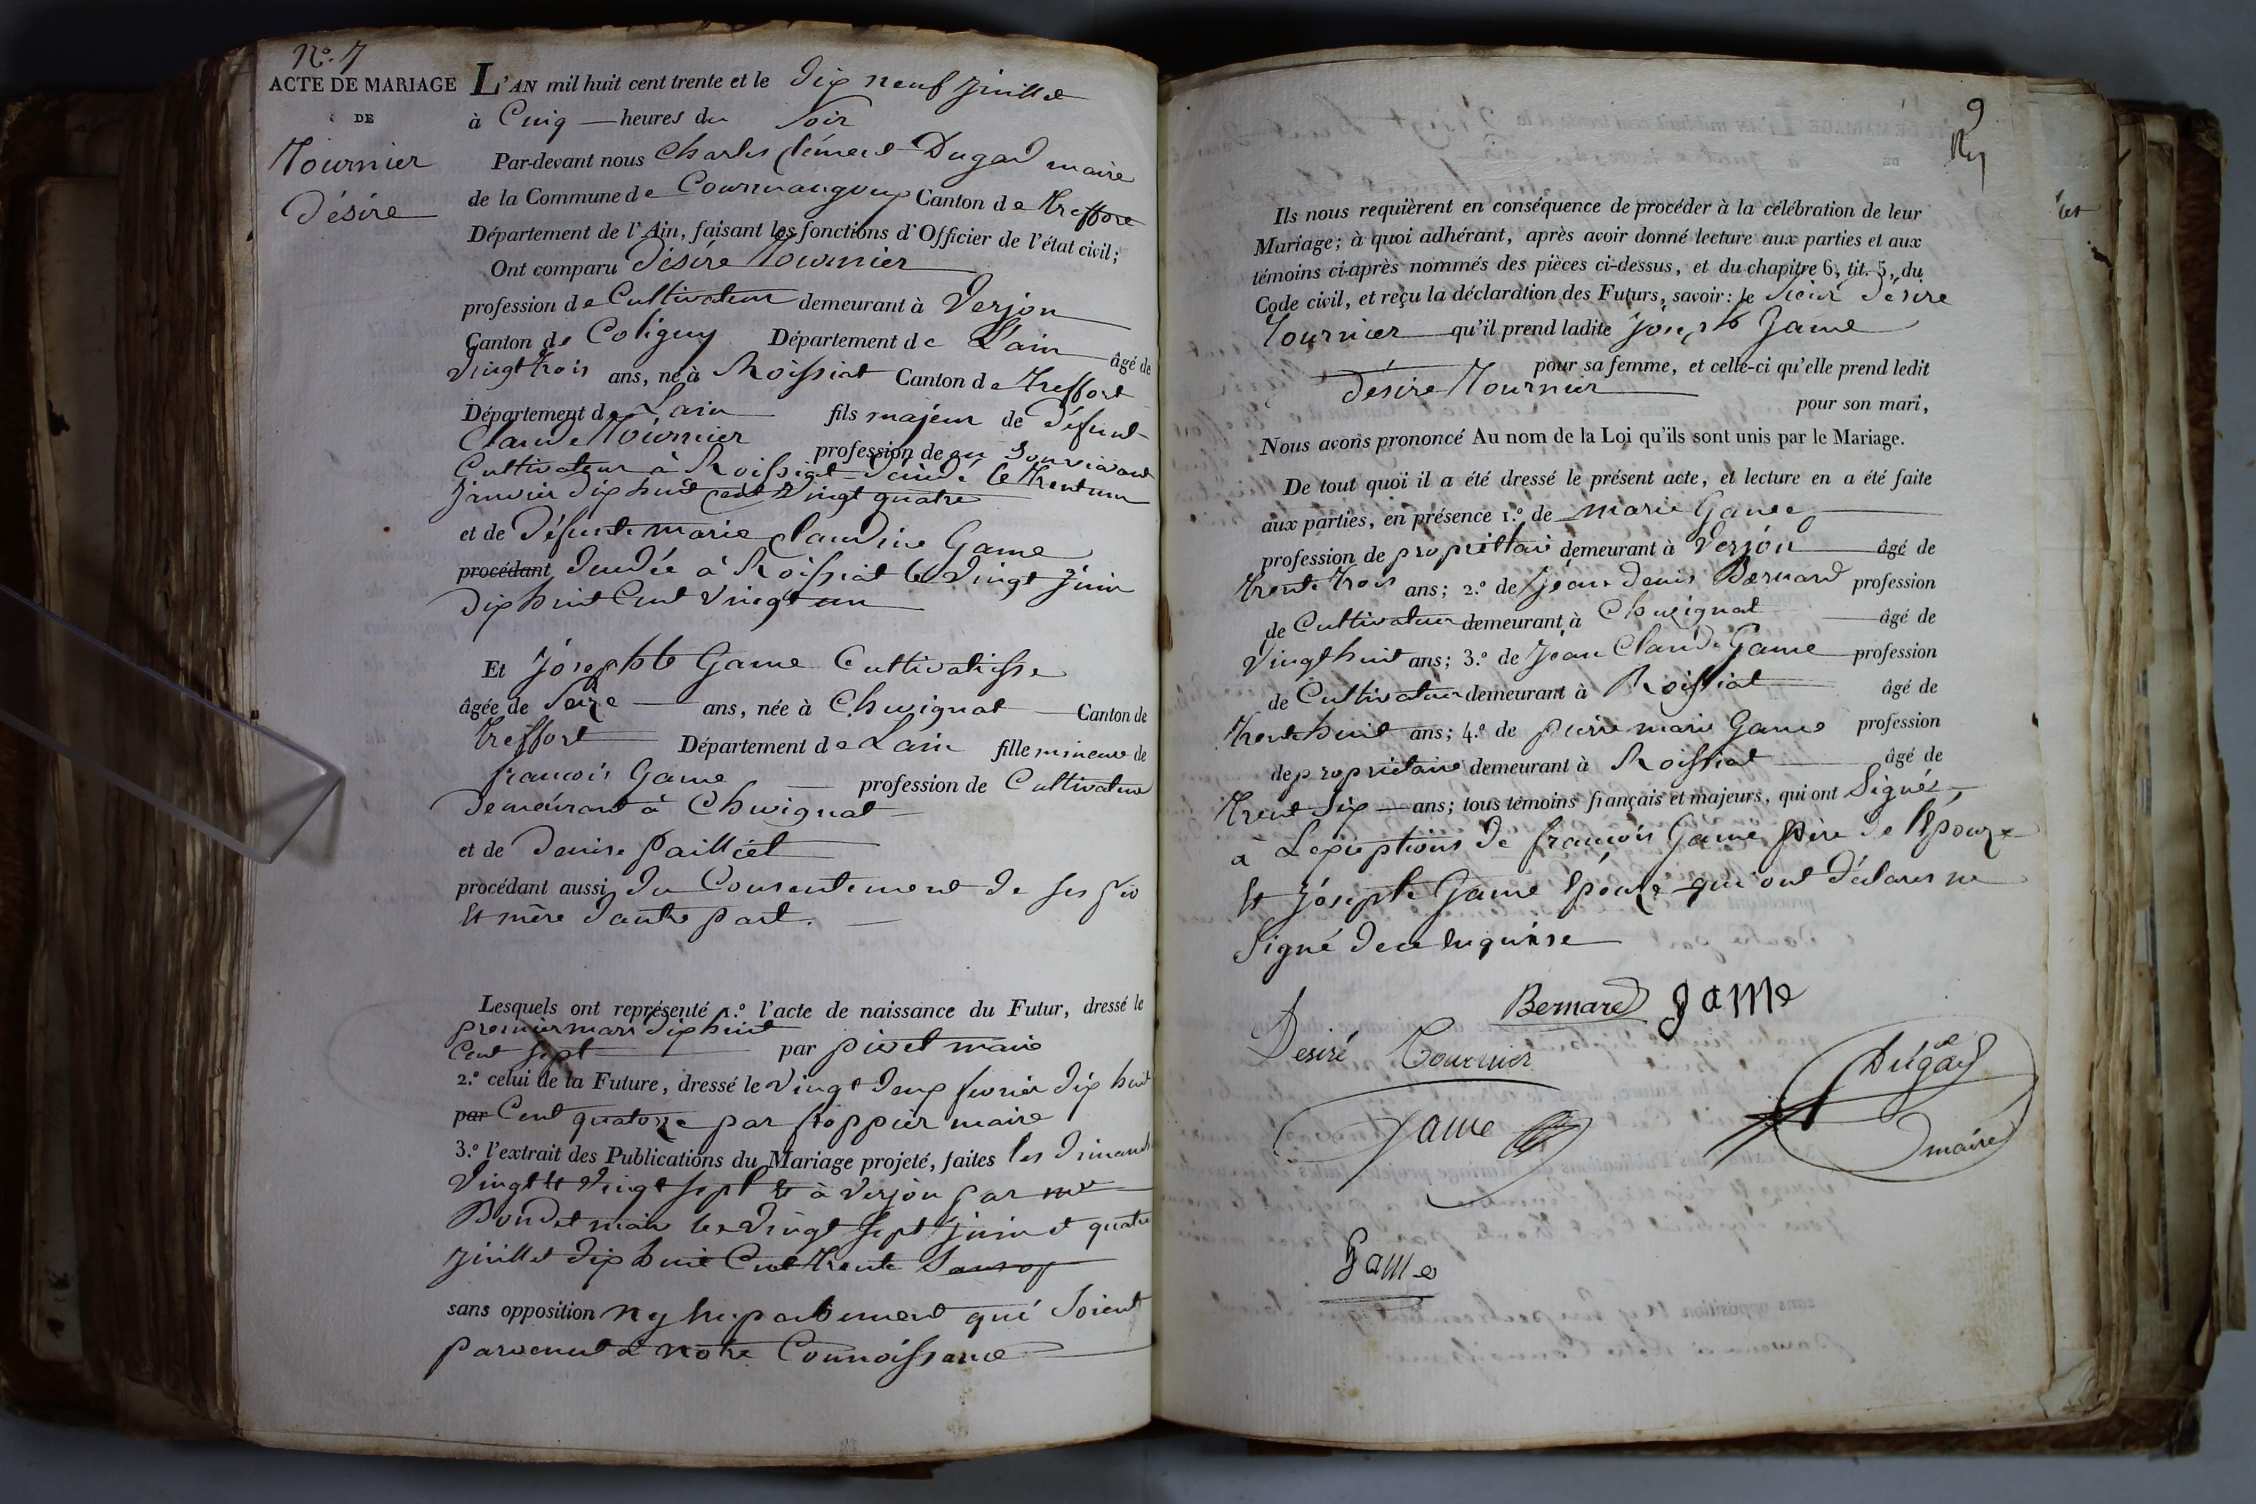 N.º 7
ACTE DE MARIAGE
DE
Tournier
Désiré
L'AN mil huit cent trente et le dix neuf juillet
à Cinq heures du Soir
Par-devant nous Charles Clément Dugad maire
de la Commune de Courmangoux Canton de treffort
Département de l'Ain, faisant les fonctions d'Officier de l'état civil;
Ont comparu Désiré Tournier
profession de Cultivateur demeurant à Verjon
Canton de Coligny Département de L'ain âgé de
Vingt trois ans, né à Roissiat Canton de treffort
Département de Lain fils majeur de défunt
Claude Tournier profession de en Son vivant
Cultivateur à Roissiat décédé le trent un
janvier dix huit cent vingt quatre
et de défunte marie Claudine Game
procédant décédée à Roissiat le vingt juin
dix huit Cent vingt un
Et josephte Game Cultivatrisse
âgée de Seize ans, née à Chevignat Canton de
treffort Département de Lain fille mineure de
francois Game profession de Cultivateur
demeurant à Chevignat
et de denise pailliet
procédant aussi du Consentement de ses père
et mère d'autre part.
Lesquels ont représenté 1.º l'acte de naissance du Futur, dressé le
premier mars dix huit
Cent sept par pivet maire
2.º celui de la Future, dressé le vingt deux fevrier dix huit
par Cent quatorze par froppier maire
3.º l'extrait des Publications du Mariage projeté, faites les dimanch
vingt et vingt sept et à Verjon par mr
Bondet maire les vingt sept juin et quatre
juillet dix huit Cent trente
sans opposition ny hepechement qui Soient
parvenut à notre Connoissance
9
Ils nous requièrent en conséquence de procéder à la célébration de leur
Mariage; à quoi adhérant, après avoir donné lecture aux parties et aux
témoins ci-après nommés des pièces ci-dessus, et du chapitre 6, tit. 5, du
Code civil, et reçu la déclaration des Futurs, savoir: le Sieur Désiré
Tournier qu'il prend ladite josephte Game
pour sa femme, et celle-ci qu'elle prend ledit
désiré Tournier
pour son mari,
Nous avons prononcé Au nom de la Loi qu'ils sont unis par le Mariage.
De tout quoi il a été dressé le présent acte, et lecture en a été faite
aux parties, en présence 1.º de marie Game
profession de propriétaire demeurant à Verjon âgé de
trente trois ans; 2.º de jean denis Bernard profession
de Cultivateur demeurant à Chevignat âgé de
vingt huit ans; 3.º de jean Claude Game profession
de Cultivateur demeurant à Roissiat âgé de
trente huit ans; 4.º de pierre marie Game profession
de propriétaire demeurant à Roissiat âgé de
trent six ans; tous témoins français et majeurs, qui ont Signé
à Lexeptions de francois Game père de lepouze
et josepte Game lepouze qui ont déclarer ne
Signé de ce enquirse
Bernard game
Desiré Tournier
Dugad
maire
Game
game